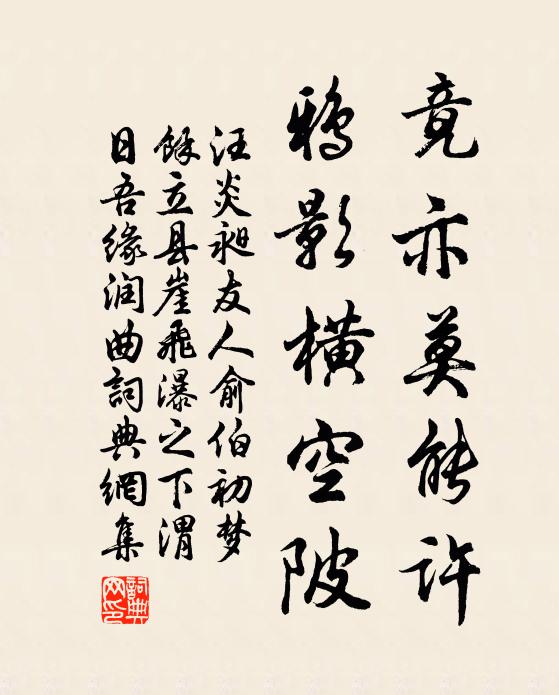 竟亦莫能许
鸦影横空陂
汪炎昶友人俞伯初梦
馀立县崖飞瀑之下渭
日吾缘润曲詞典網集
詞典網印